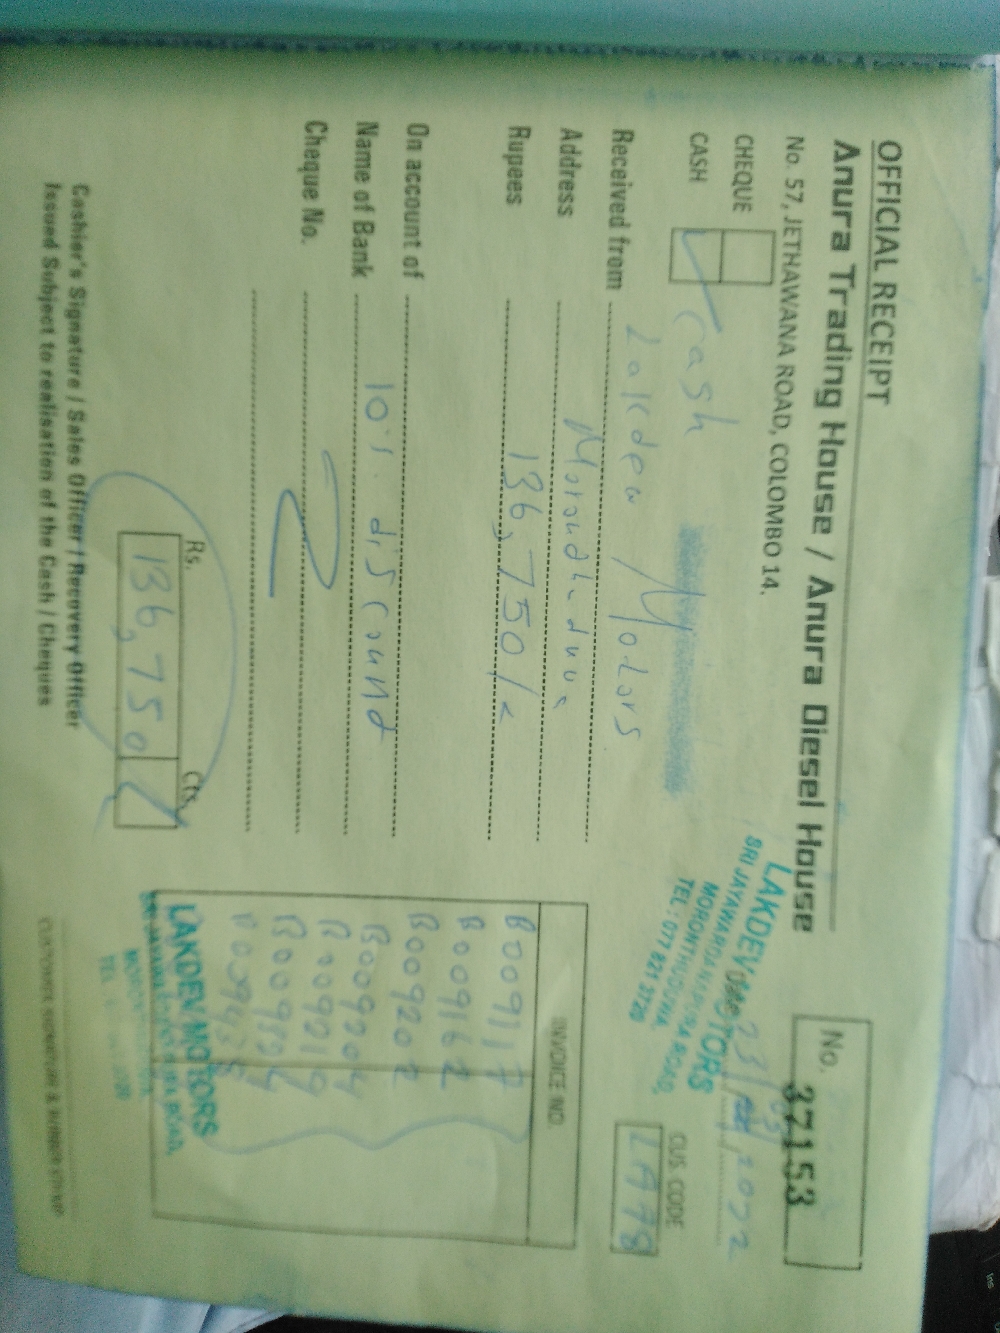 OFFICIAL RECEIPT
Anura Trading House / Anura Diesel House
No. 57, JETHAWANA ROAD, COLOMBO 14.
No. 37153
CHEQUE
CASH
cash
LAKDEV MOTORS
SRI JAYAWARDANAPURA ROAD,
MORONTHUDUWA.
TEL: 077 821 3720
Date 23/03/2022
CUS. CODE
LA78
Received from Lakdew Motors
Address
Rupees 136,750/=
On account of
Name of Bank 10% discount
Cheque No.
INVOICE NO.
B009117
B009162
B009202
B009204
B009219
Rs. Cts.
136,750
LAKDEV MOTORS
Cashier's Signature / Sales Officer / Recovery Officer
Issued Subject to realisation of the Cash / Cheques
CUSTOMER SIGNATURE & RUBBER STAMP